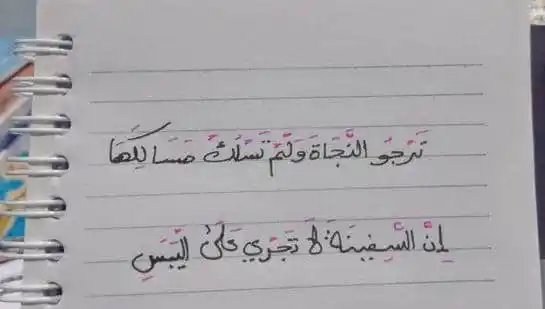 تَرْجُو النَّجَاةَ وَلَمْ تَسْلُكْ مَسَالِكَهَا
إِنَّ السَّفِينَةَ لَا تَجْرِي عَلَىٰ اليَبَسِ